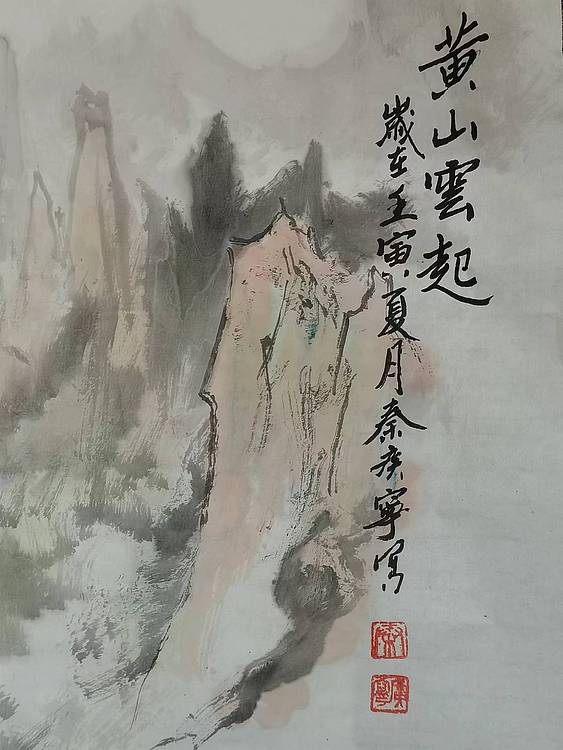 黄山雲起
歲在壬寅夏月秦庚寧写